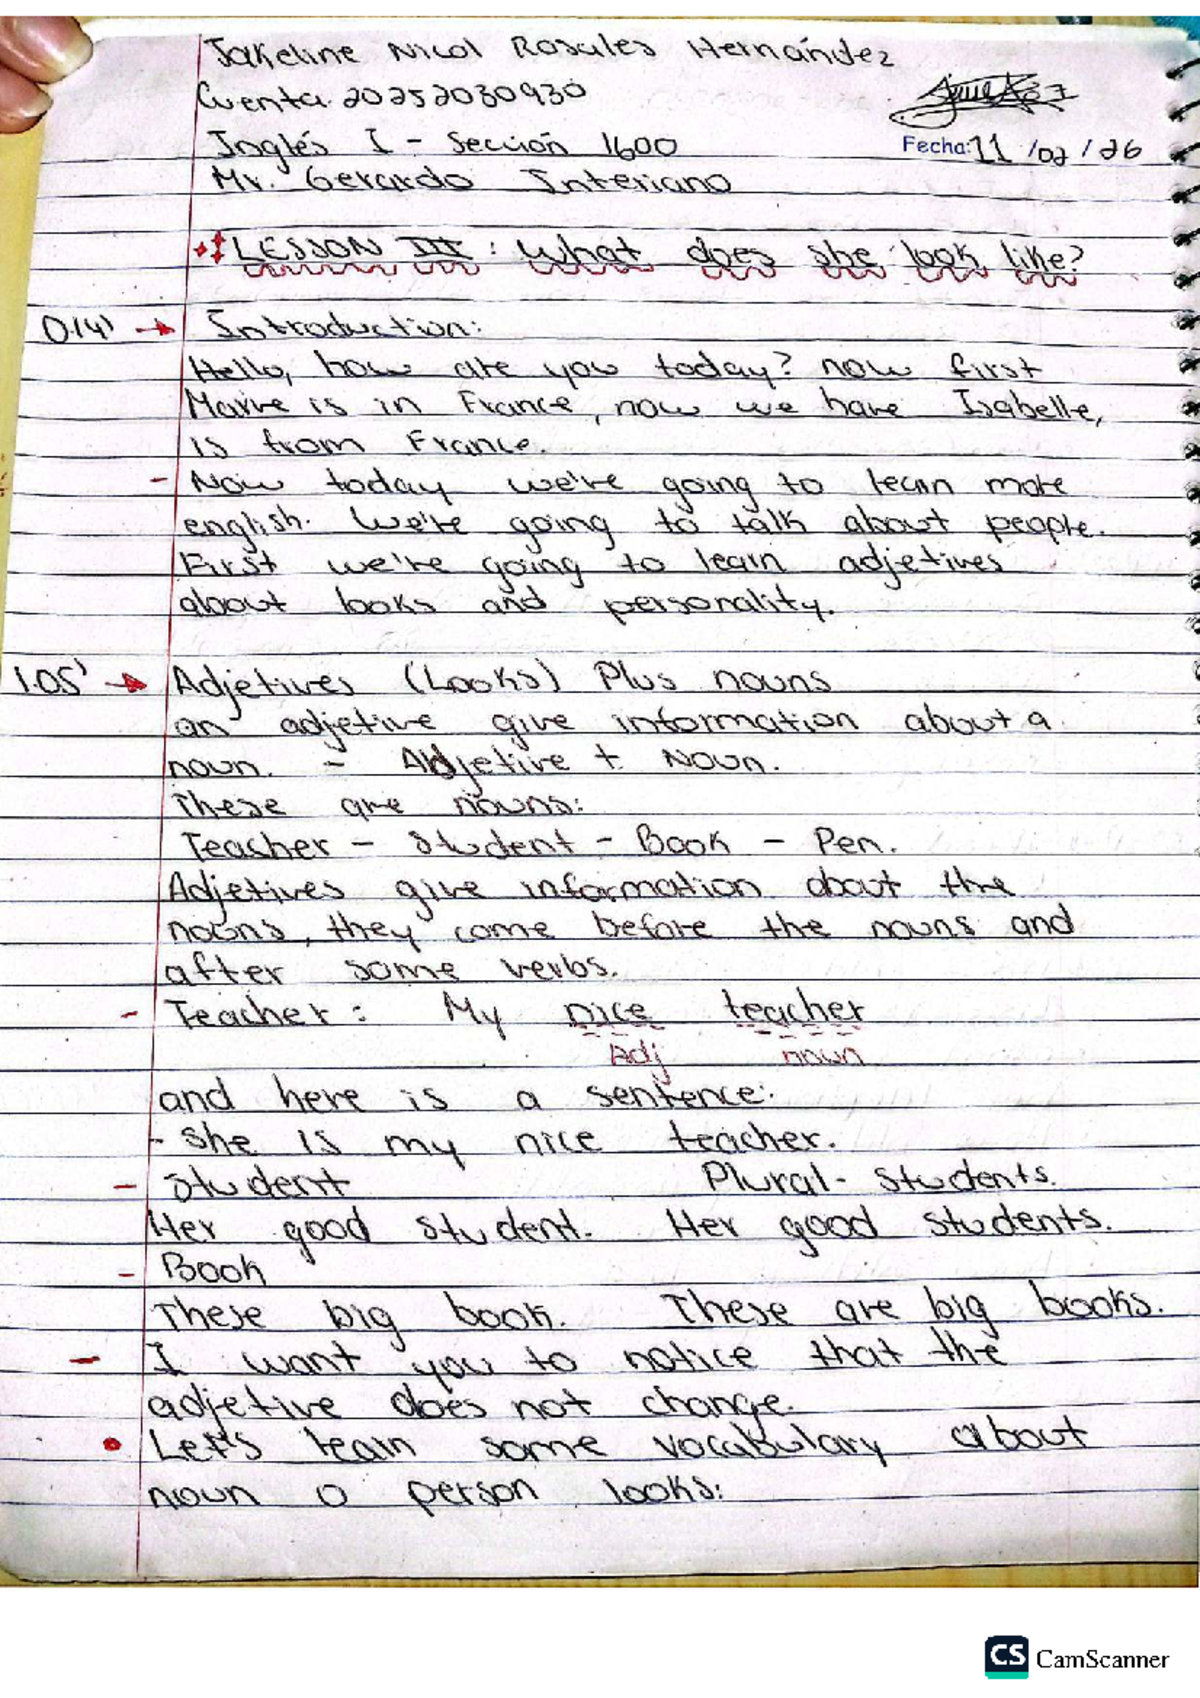 Jakeline Nicol Rosales Hernández
Cuenta. 20252030930
Inglés I - Sección 1600
Fecha: 11 / 02 / 26
Mr. Gerardo Interiano
LESSON III: What does she look like?
0.14' → Introduction:
Hello, how are you today? now first
Marie is in France, now we have Isabelle,
is from France.
- Now today we're going to learn more
english. We're going to talk about people.
First we're going to learn adjetives
about looks and personality.
1.05' → Adjetives (Looks) Plus nouns
an adjetive give information about a
noun. - Adjetive + Noun.
These are nouns:
Teacher - Student - Book - Pen.
Adjetives give information about the
nouns, they come before the nouns and
after some verbs.
- Teacher: My nice teacher
Adj noun
and here is a sentence:
- She is my nice teacher.
- Student Plural- Students.
Her good student. Her good students.
- Book
These big book. These are big books.
- I want you to notice that the
adjetive does not change.
• Let's learn some vocabulary about
noun o person looks:
CS CamScanner